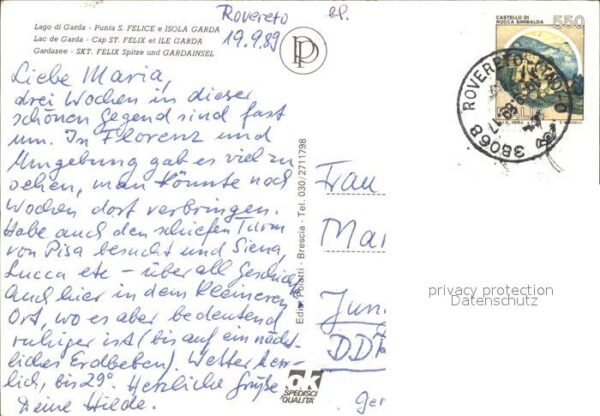 Lago di Garda - Punta S. FELICE e ISOLA GARDA
Lac de Garda - Cap ST. FELIX et ILE GARDA
Gardasee - SKT. FELIX Spitze und GARDAINSEL
Rovereto
19.9.89
BP.
Liebe Maria,
drei Wochen in dieser
schönen Gegend sind fast
um. In Florenz und
Umgebung gab es viel zu
sehen, man könnte noch
Wochen dort verbringen.
Habe auch den schiefen Turm
von Pisa besucht und Siena,
Lucca etc - überall Geschich
Auch hier in dem kleineren
Ort, wo es aber bedeutend
ruhiger ist (bis auf ein nächt-
liches Erdbeben). Wetter herr-
lich, bis 29°. Herzliche Grüße
Deine Hilde.
Tel. 030/2711798
Brescia
OK
SPEDISCI
QUALITÀ
CASTELLO DI
ROCCA SINIBALDA
550
38068 ROVERETO
Frau
Mar
Jun
DDR
Ger
privacy protection
Datenschutz